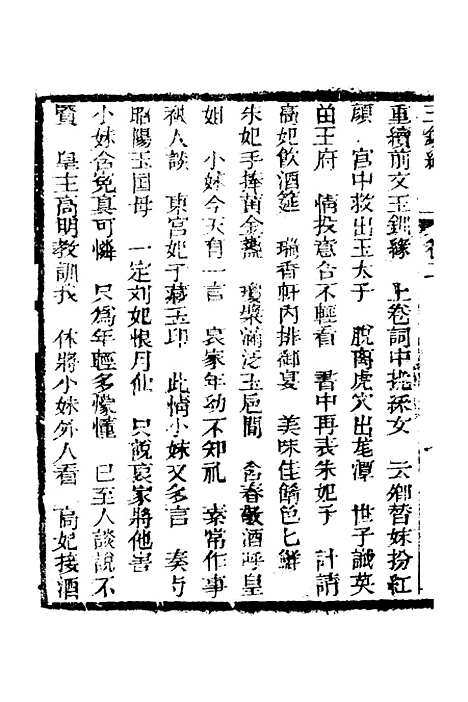 玉釧緣 卷二
重續前文玉釧緣 上卷詞中挑綵女 云鄉替妹扮紅
顏 宮中救出玉太子 脫离虎穴出龍潭 世子誠英
苗王府 情投意合不輕看 書中再表朱妃子 計請
高妃飲酒筵 瑞香軒內排御宴 美味佳餚色乜鮮
朱妃手捧黃金盞 瓊漿滿泛玉卮間 含春敬酒呼皇
姐 小妹今天有一言 哀家年幼不知礼 素常作事
被人談 東宮妃子藏玉印 此情小妹又多言 奏与
昭陽王国母 一定刘妃恨月仙 只說哀家將他害
小妹含冤真可憐 只為年輕多懞懂 已至人談說不
賢 皇主高明教訓我 休將小妹外人看 高妃接酒